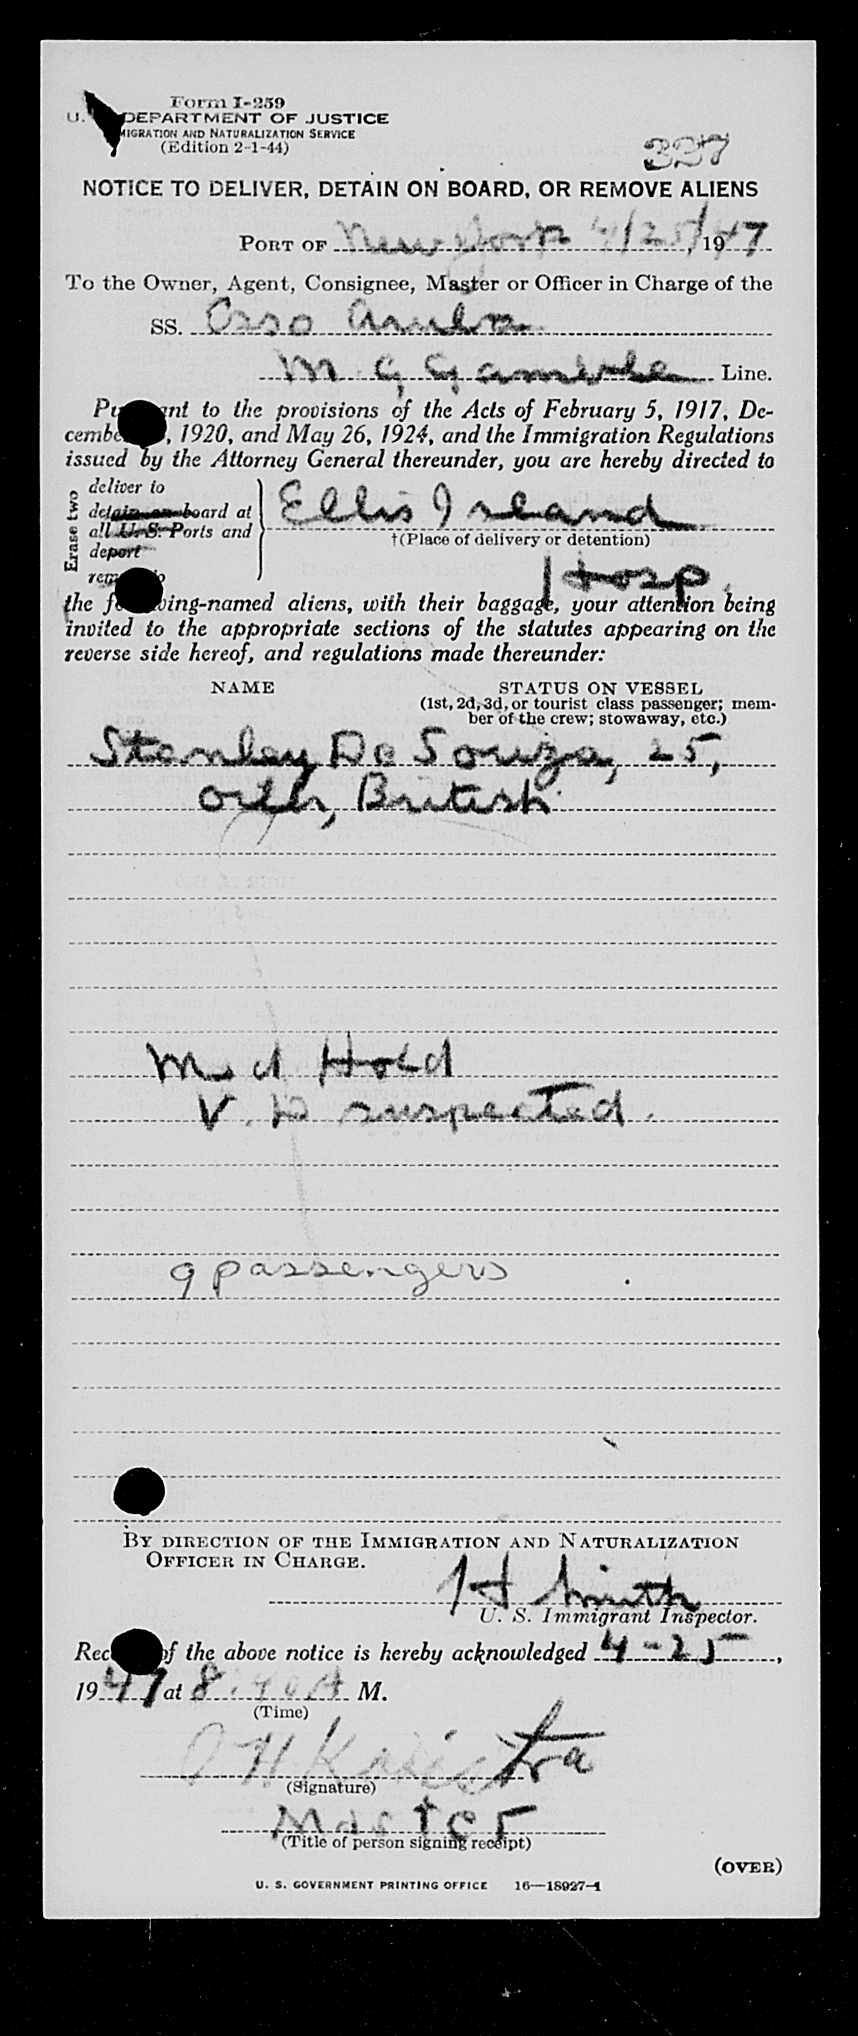 Form I-259
U. DEPARTMENT OF JUSTICE
MIGRATION AND NATURALIZATION SERVICE
(Edition 2-1-44)
327
NOTICE TO DELIVER, DETAIN ON BOARD, OR REMOVE ALIENS
PORT OF New York 4/25/, 1947
To the Owner, Agent, Consignee, Master or Officer in Charge of the
SS. Esso Aruba
M. G. Gamble Line.
Pu ant to the provisions of the Acts of February 5, 1917, De-
cembe , 1920, and May 26, 1924, and the Immigration Regulations
issued by the Attorney General thereunder, you are hereby directed to
Erase two
deliver to
detain on board at
all U. S. Ports and
deport
rem to
Ellis Island
†(Place of delivery or detention)
Hosp.
the f wing-named aliens, with their baggage, your attention being
invited to the appropriate sections of the statutes appearing on the
reverse side hereof, and regulations made thereunder:
NAME STATUS ON VESSEL
(1st, 2d, 3d, or tourist class passenger; mem-
ber of the crew; stowaway, etc.)
Stanley De Souza, 25,
oiler, British
Med Hold
V. D suspected.
9 passengers
BY DIRECTION OF THE IMMIGRATION AND NATURALIZATION
OFFICER IN CHARGE.
H Smith
U. S. Immigrant Inspector.
Rec of the above notice is hereby acknowledged 4-25,
1947 at 8:40 A M.
(Time)
(Signature)
Master
(Title of person signing receipt)
(OVER)
U. S. GOVERNMENT PRINTING OFFICE 16—18927-1